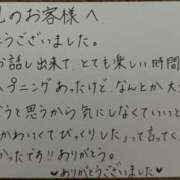 しのお客様へ
うございました。
お話し出来て、とても楽しい時間
ハプニングあったけど、なんとか大
うと思うから気にしないでいいと
かわいくてびっくりした」って言ってく
かったです!!ありがとう。
♥ありがとうございました♥